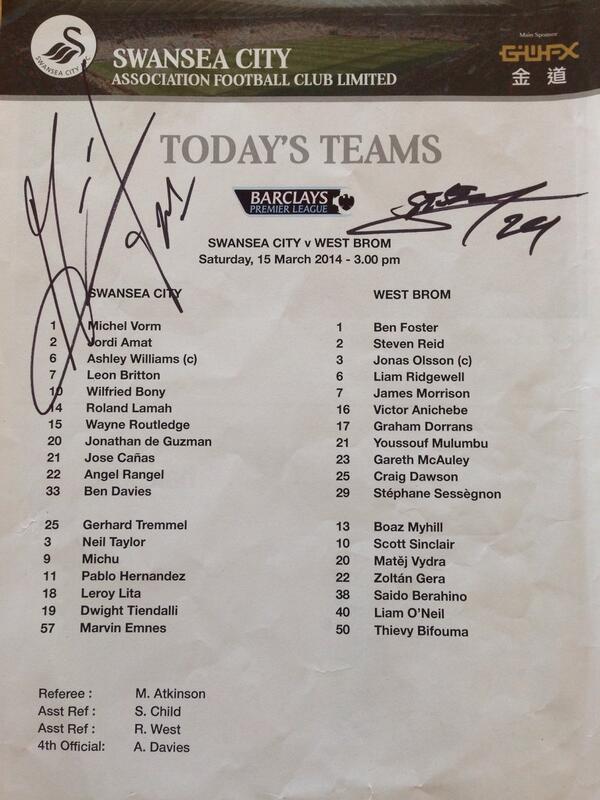 SWANSEA CITY FC
SWANSEA CITY
ASSOCIATION FOOTBALL CLUB LIMITED
Main Sponsor
GWFX
金道
TODAY'S TEAMS
BARCLAYS
PREMIER LEAGUE
24
SWANSEA CITY v WEST BROM
Saturday, 15 March 2014 - 3.00 pm
SWANSEA CITY
1 Michel Vorm
2 Jordi Amat
6 Ashley Williams (c)
7 Leon Britton
10 Wilfried Bony
14 Roland Lamah
15 Wayne Routledge
20 Jonathan de Guzman
21 Jose Cañas
22 Angel Rangel
33 Ben Davies
25 Gerhard Tremmel
3 Neil Taylor
9 Michu
11 Pablo Hernandez
18 Leroy Lita
19 Dwight Tiendalli
57 Marvin Emnes
WEST BROM
1 Ben Foster
2 Steven Reid
3 Jonas Olsson (c)
6 Liam Ridgewell
7 James Morrison
16 Victor Anichebe
17 Graham Dorrans
21 Youssouf Mulumbu
23 Gareth McAuley
25 Craig Dawson
29 Stéphane Sessègnon
13 Boaz Myhill
10 Scott Sinclair
20 Matěj Vydra
22 Zoltán Gera
38 Saido Berahino
40 Liam O'Neil
50 Thievy Bifouma
Referee : M. Atkinson
Asst Ref : S. Child
Asst Ref : R. West
4th Official: A. Davies